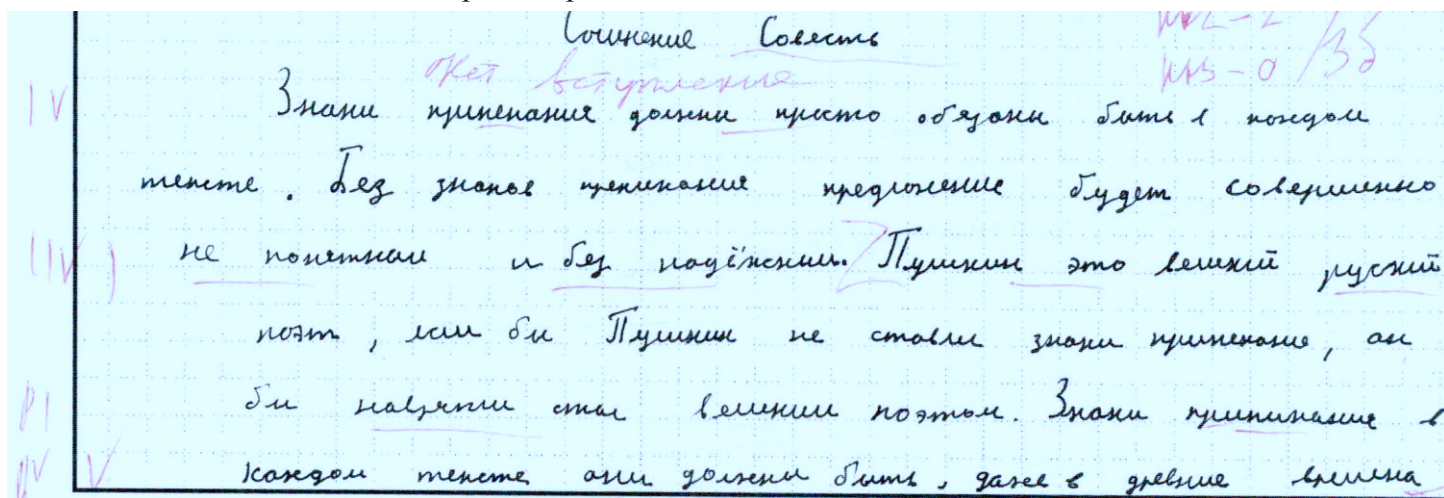 Сочинение Совесть
Нет вступления
Знаки припенания должны просто обязаны быть в каждом
тексте. Без знаков препинания предложение будет совершенно
не понятным и без надёжным. Пушкин это великий руский
поэт, если бы Пушкин не ставил знаки припенания, он
бы наврятли стал великим поэтом. Знаки припинания в
каждом тексте они должны быть, даже в древние времена